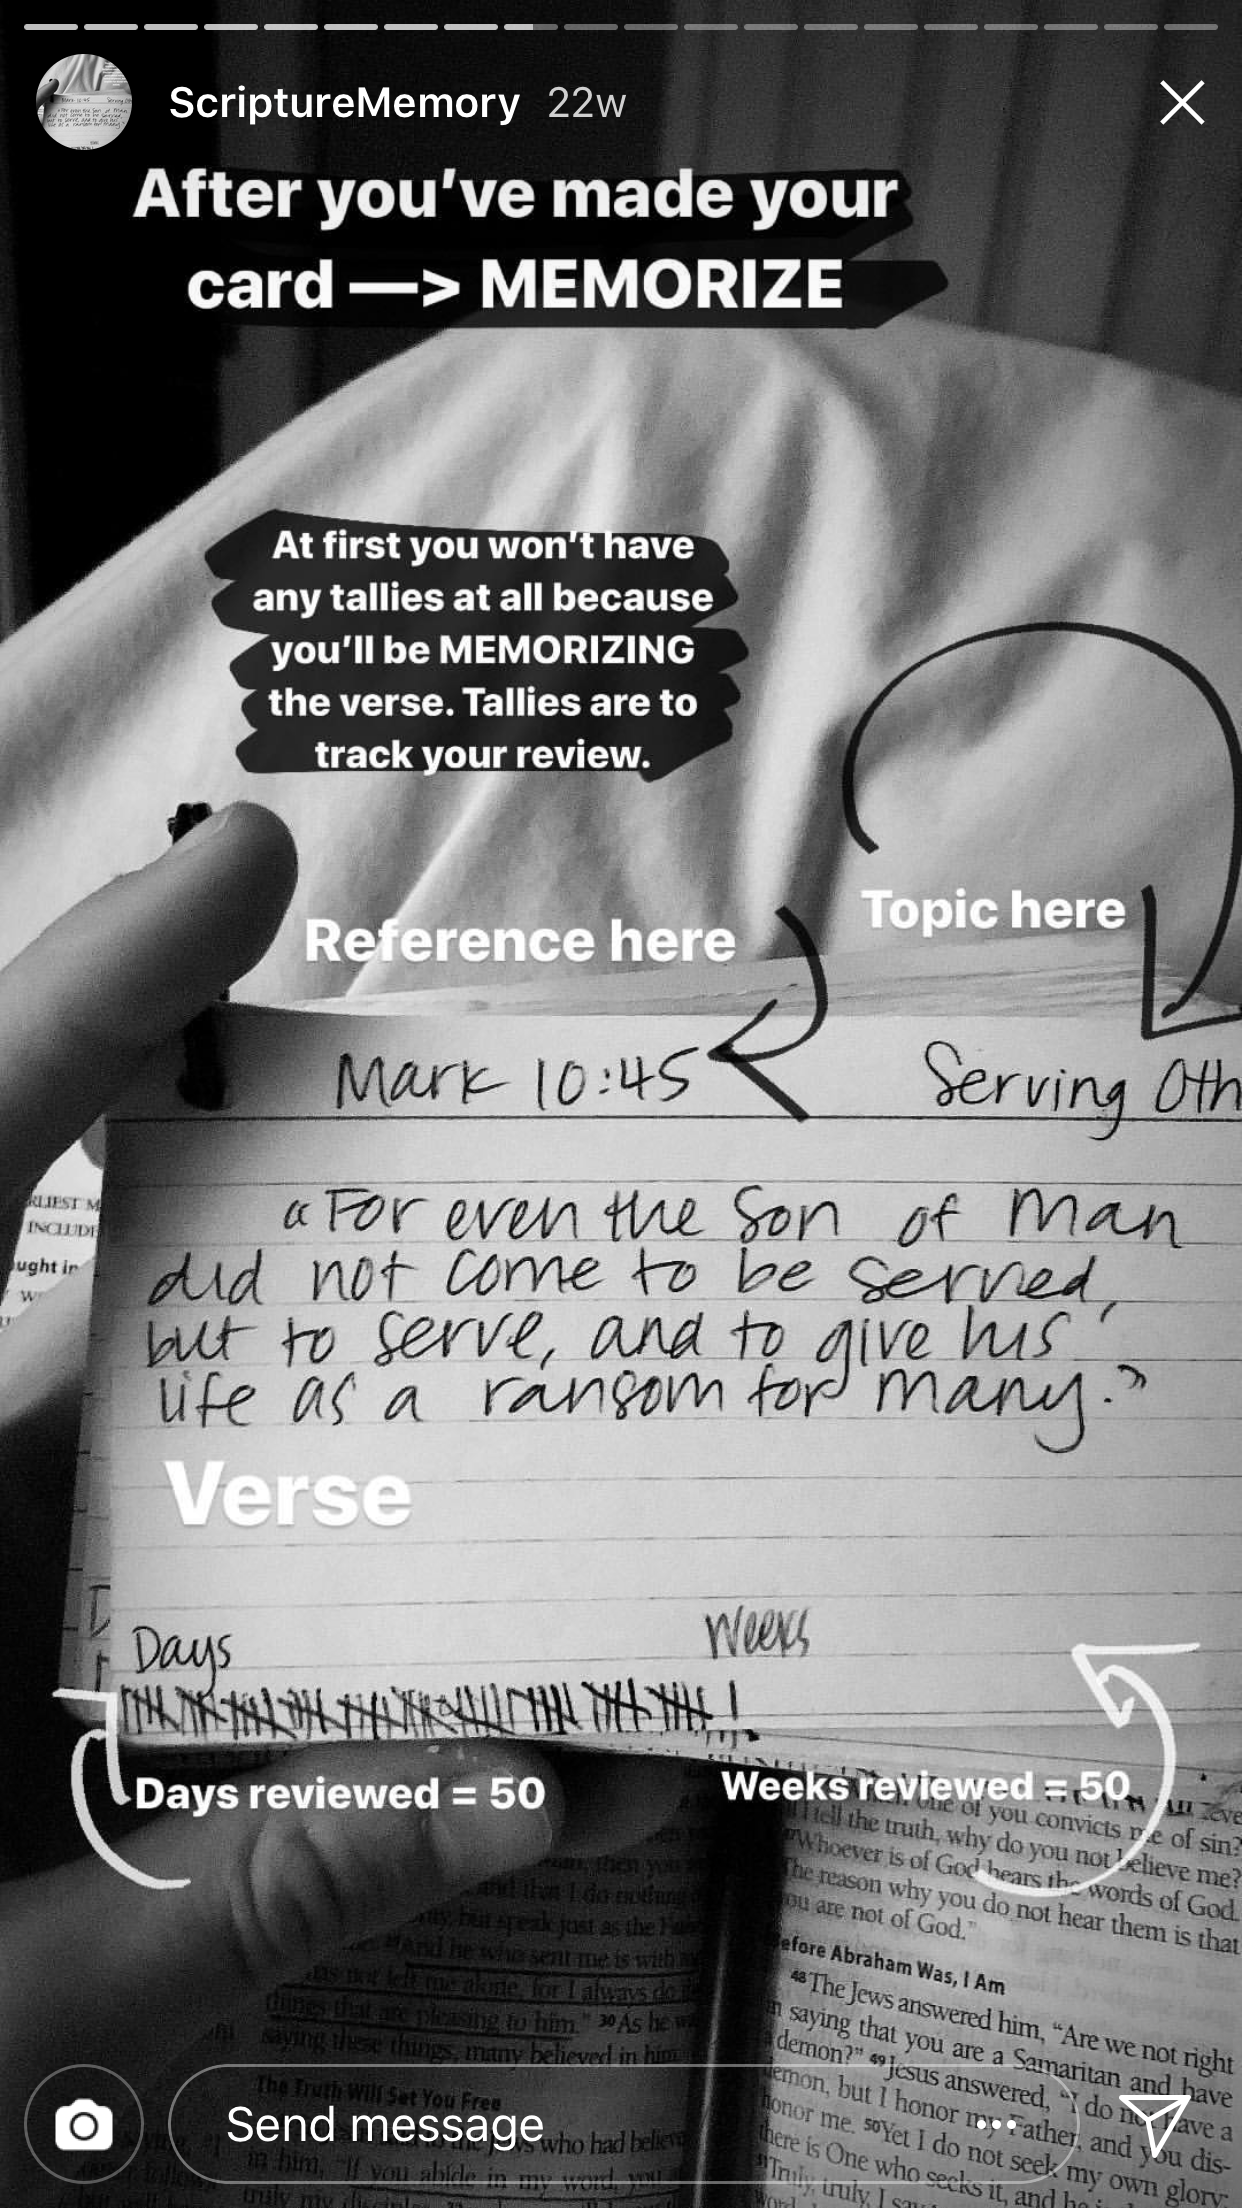 ScriptureMemory 22w
After you've made your
card —> MEMORIZE
At first you won't have
any tallies at all because
you'll be MEMORIZING
the verse. Tallies are to
track your review.
Topic here
Reference here
Mark 10:45 Serving Oth
"For even the Son of Man
did not come to be served,
but to serve, and to give his
life as a ransom for many."
RLIEST M
INCLUDE
ught in
Verse
Days Weeks
Days reviewed = 50
Weeks reviewed = 50
one of you convicts me of sin?
I tell the truth, why do you not believe me?
Whoever is of God hears the words of God.
The reason why you do not hear them is that
you are not of God."
efore Abraham Was, I Am
48 The Jews answered him, "Are we not right
in saying that you are a Samaritan and have
demon?" 49 Jesus answered, "I do not have a
demon, but I honor my Father, and you dis-
honor me. 50 Yet I do not seek my own glory;
there is One who seeks it, and he
"Truly, truly, I say
and that I do nothing
but speak just as the Fa
And he who sent me is with
has not left me alone, for I always do
things that are pleasing to him." 30 As he w
saying these things, many believed in him
The Truth Will Set You Free
who had believ
in him, "If you abide in my word, you
truly my
Send message